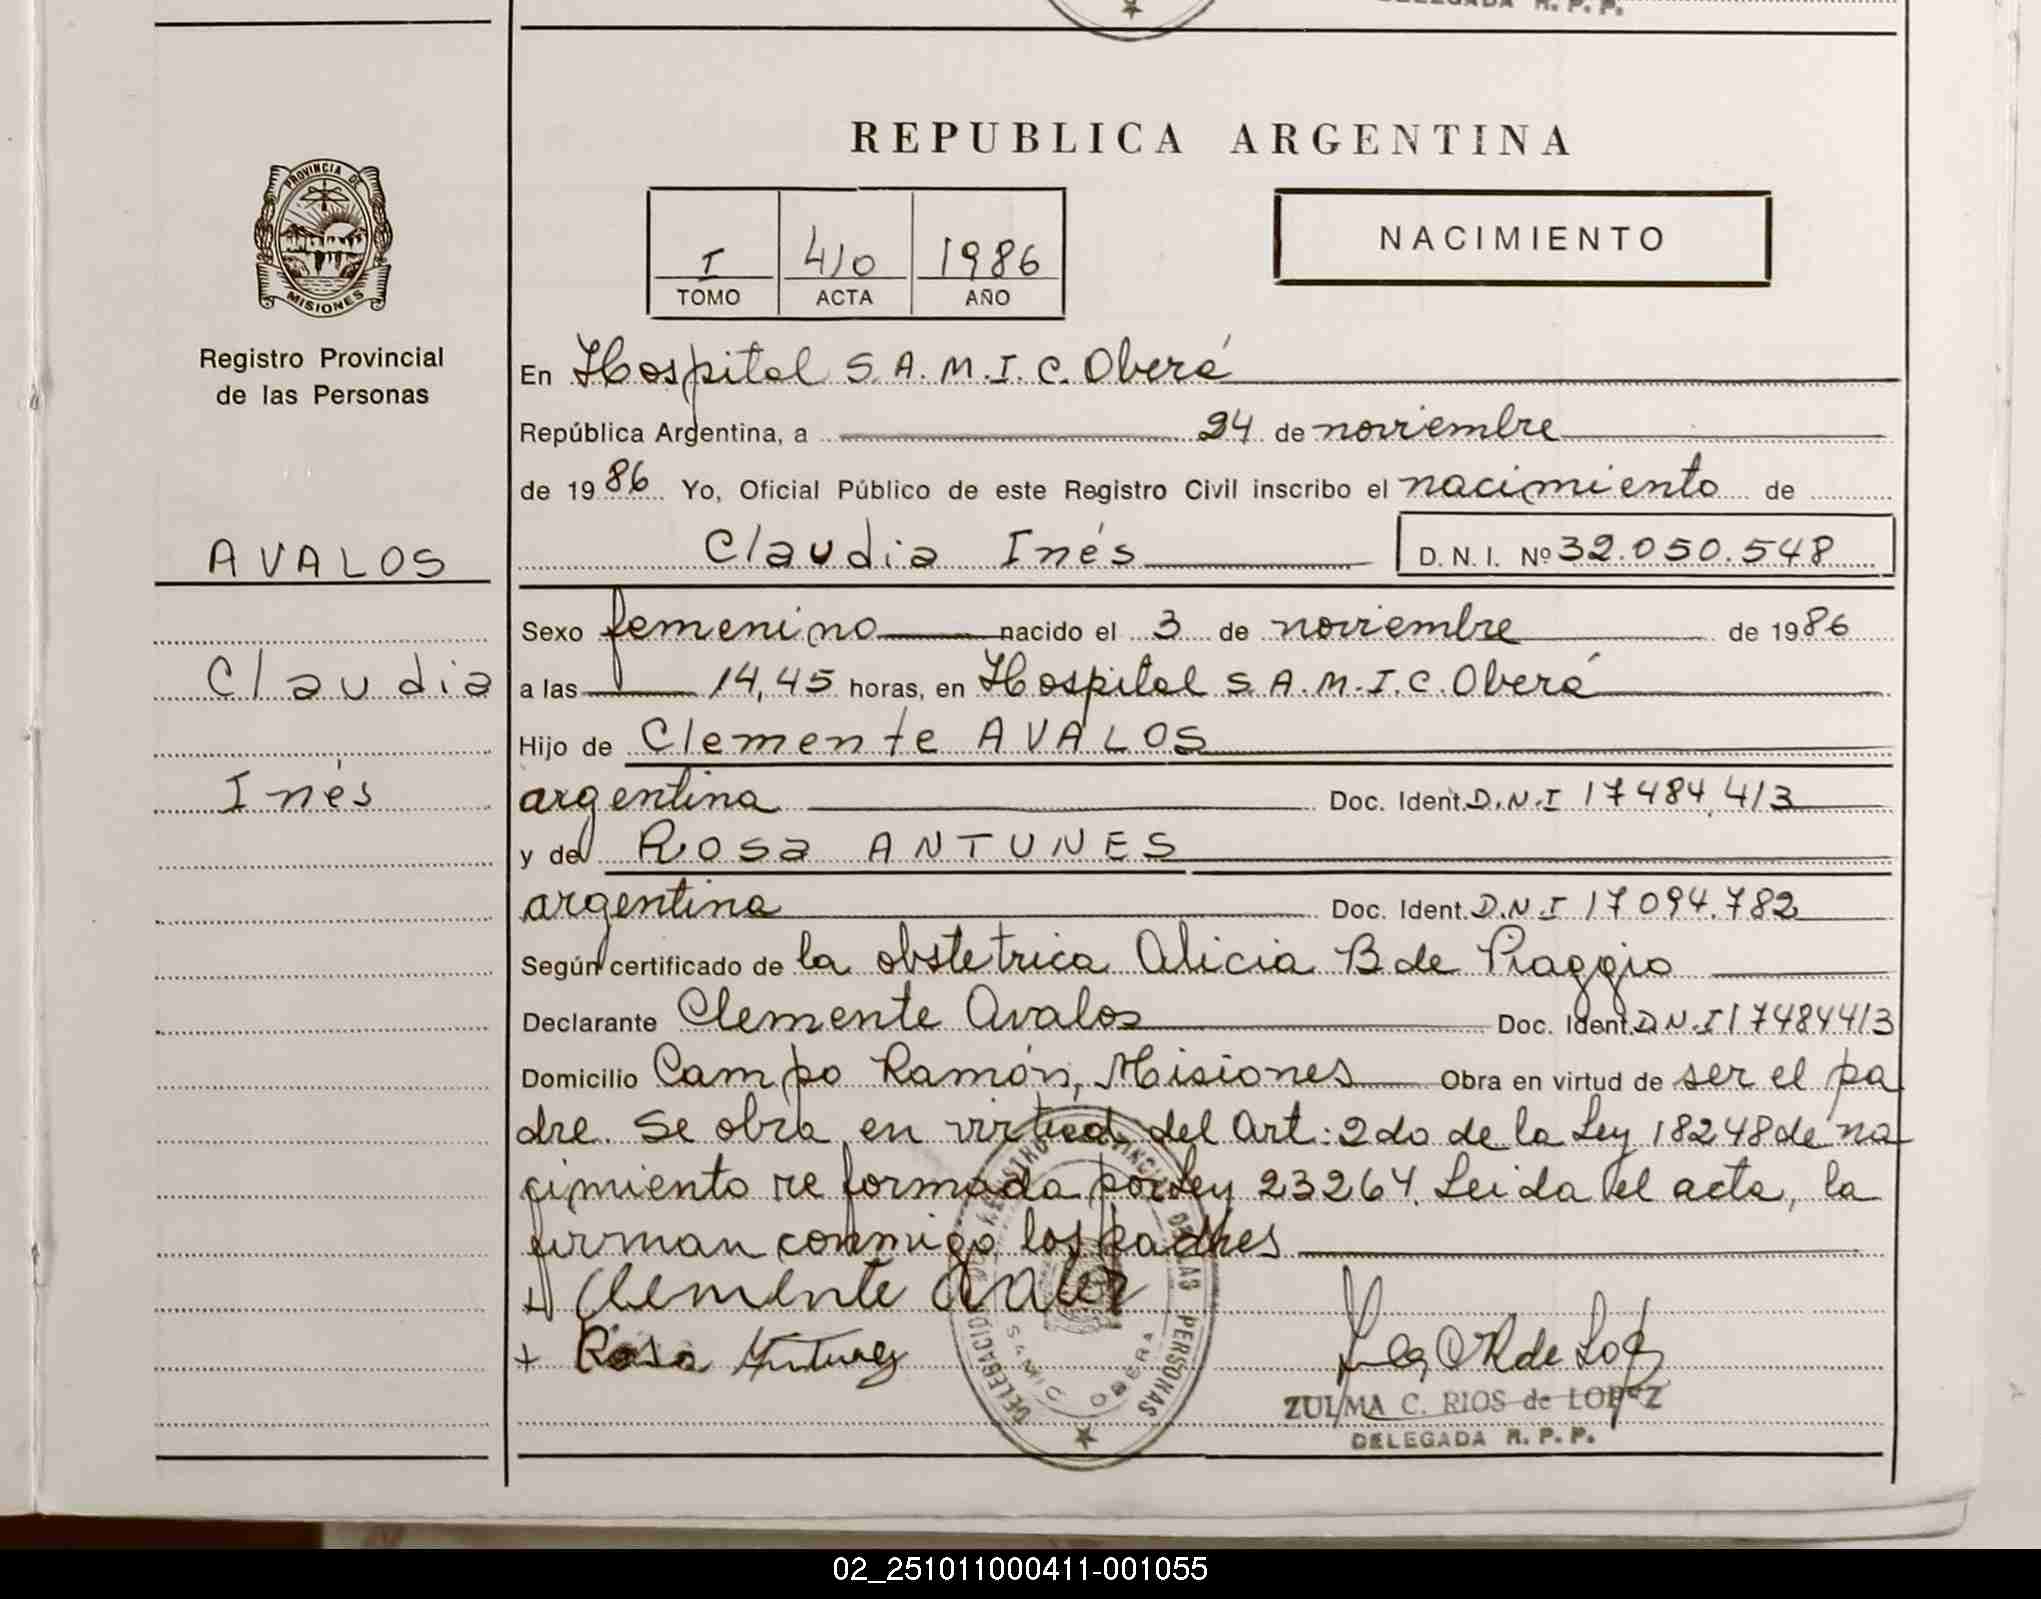 DELEGADA R. P. P.
REPUBLICA ARGENTINA
PROVINCIA DE
MISIONES
I 410 1986
TOMO ACTA AÑO
NACIMIENTO
Registro Provincial
de las Personas
AVALOS
Claudia
Inés
En Hospital S.A.M.I.C. Oberá
República Argentina, a 24 de noviembre
de 1986 Yo, Oficial Público de este Registro Civil inscribo el nacimiento de
Claudia Inés D.N.I. Nº 32.050.548
Sexo femenino nacido el 3 de noviembre de 1986
a las 14,45 horas, en Hospital S.A.M.I.C. Oberá
Hijo de Clemente AVALOS
argentina Doc. Ident. D.N.I 17484.413
y de Rosa ANTUNES
argentina Doc. Ident. D.N.I 17094.782
Según certificado de la obstetrica Alicia B de Piaggio
Declarante Clemente Avalos Doc. Ident. D.N.I 17484413
Domicilio Campo Ramón, Misiones Obra en virtud de ser el pa
dre. Se obra en virtud del Art: 2do de la Ley 18248 de na
cimiento reformada por Ley 23264. Leida el acta, la
firman conmigo los padres
+ Clemente Avalos
+ Rosa Antunez
DELEGACION REGISTRO PROVINCIAL DE LAS PERSONAS
SAMIC OBERA
ZULMA C. RIOS de LOPEZ
DELEGADA R. P. P.
02_251011000411-001055